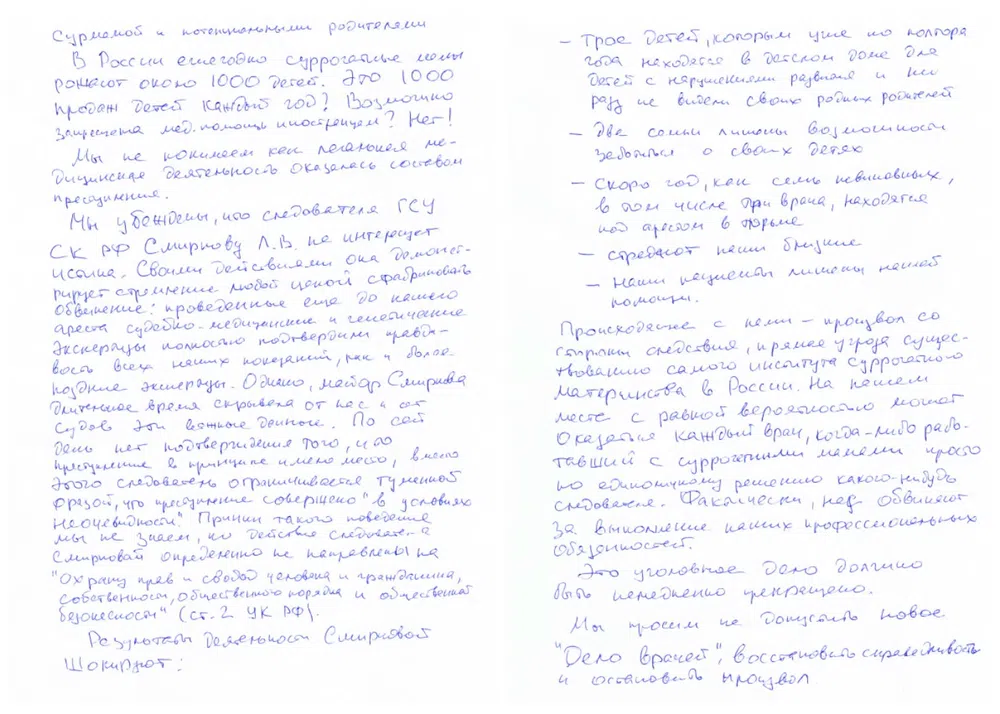 сурмамой и потенциальными родителями
В России ежегодно суррогатные мамы
рожают около 1000 детей. Это 1000
продаж детей каждый год? Возможно
запрещена мед. помощь иностранцам? Нет!
Мы не понимаем как легальная ме-
дицинская деятельность оказалась составом
преступления.
Мы убеждены, что следователя ГСУ
СК РФ Смирнову Л.В. не интересует
истина. Своими действиями она демонст-
рирует стремление любой ценой сфабриковать
обвинение: проведенные еще до нашего
ареста судебно-медицинские и генетические
экспертизы полностью подтвердили правди-
вость всех наших показаний, как и более
поздние экспертизы. Однако, майор Смирнова
длительное время скрывала от нас и от
судов эти важные данные. По сей
день нет подтверждения того, что
преступление в принципе имело место, вместо
этого следователь ограничивается туманной
фразой, что преступление совершено "в условиях
неочевидности." Причин такого поведения
мы не знаем, но действия следователя
Смирновой определенно не направлены на
"Охрану прав и свобод человека и гражданина,
собственности, общественного порядка и общественной
безопасности" (ст. 2 УК РФ).
Результаты деятельности Смирновой
шокируют:
- Трое детей, которым уже по полтора
года находятся в детском доме для
детей с нарушениями развития и ни
разу не видели своих родных родителей
- Две семьи лишены возможности
заботиться о своих детях
- Скоро год, как семь невиновных,
в том числе три врача, находятся
под арестом в тюрьме
- страдают наши близкие
- Наши пациенты лишены нашей
помощи.
Происходящее с нами - произвол со
стороны следствия, прямая угроза сущес-
твованию самого института суррогатного
материнства в России. На нашем
месте с равной вероятностью может
оказаться каждый врач, когда-либо рабо-
тавший с суррогатными мамами просто
по единоличному решению какого-нибудь
следователя. Фактически, нас обвиняют
за выполнение наших профессиональных
обязанностей.
Это уголовное дело должно
быть немедленно прекращено.
Мы просим не допустить новое
"Дело врачей", восстановить справедливость
и остановить произвол